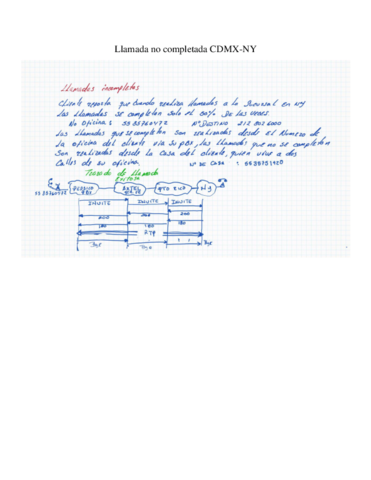 Llamada no completada CDMX-NY
Llamadas incompletas
Cliente reporta que cuando realiza llamadas a la Sucursal en NY
Las llamadas se completan solo el 60% De las veces.
No Oficina : 55 35760472 N° Destino 212
Las llamadas que se completan son realizadas desde el Número de
La oficina del cliente via su PBX, las llamadas que no se completan
Son realizadas desde la Casa del cliente, quien vive a dos
Calles de su oficina. N° de Casa : 55
Trazado de llamada
55 35760472 PBX NY
INVITE INVITE INVITE
200 200 200
180 180 180
RTP
Bye Bye Bye